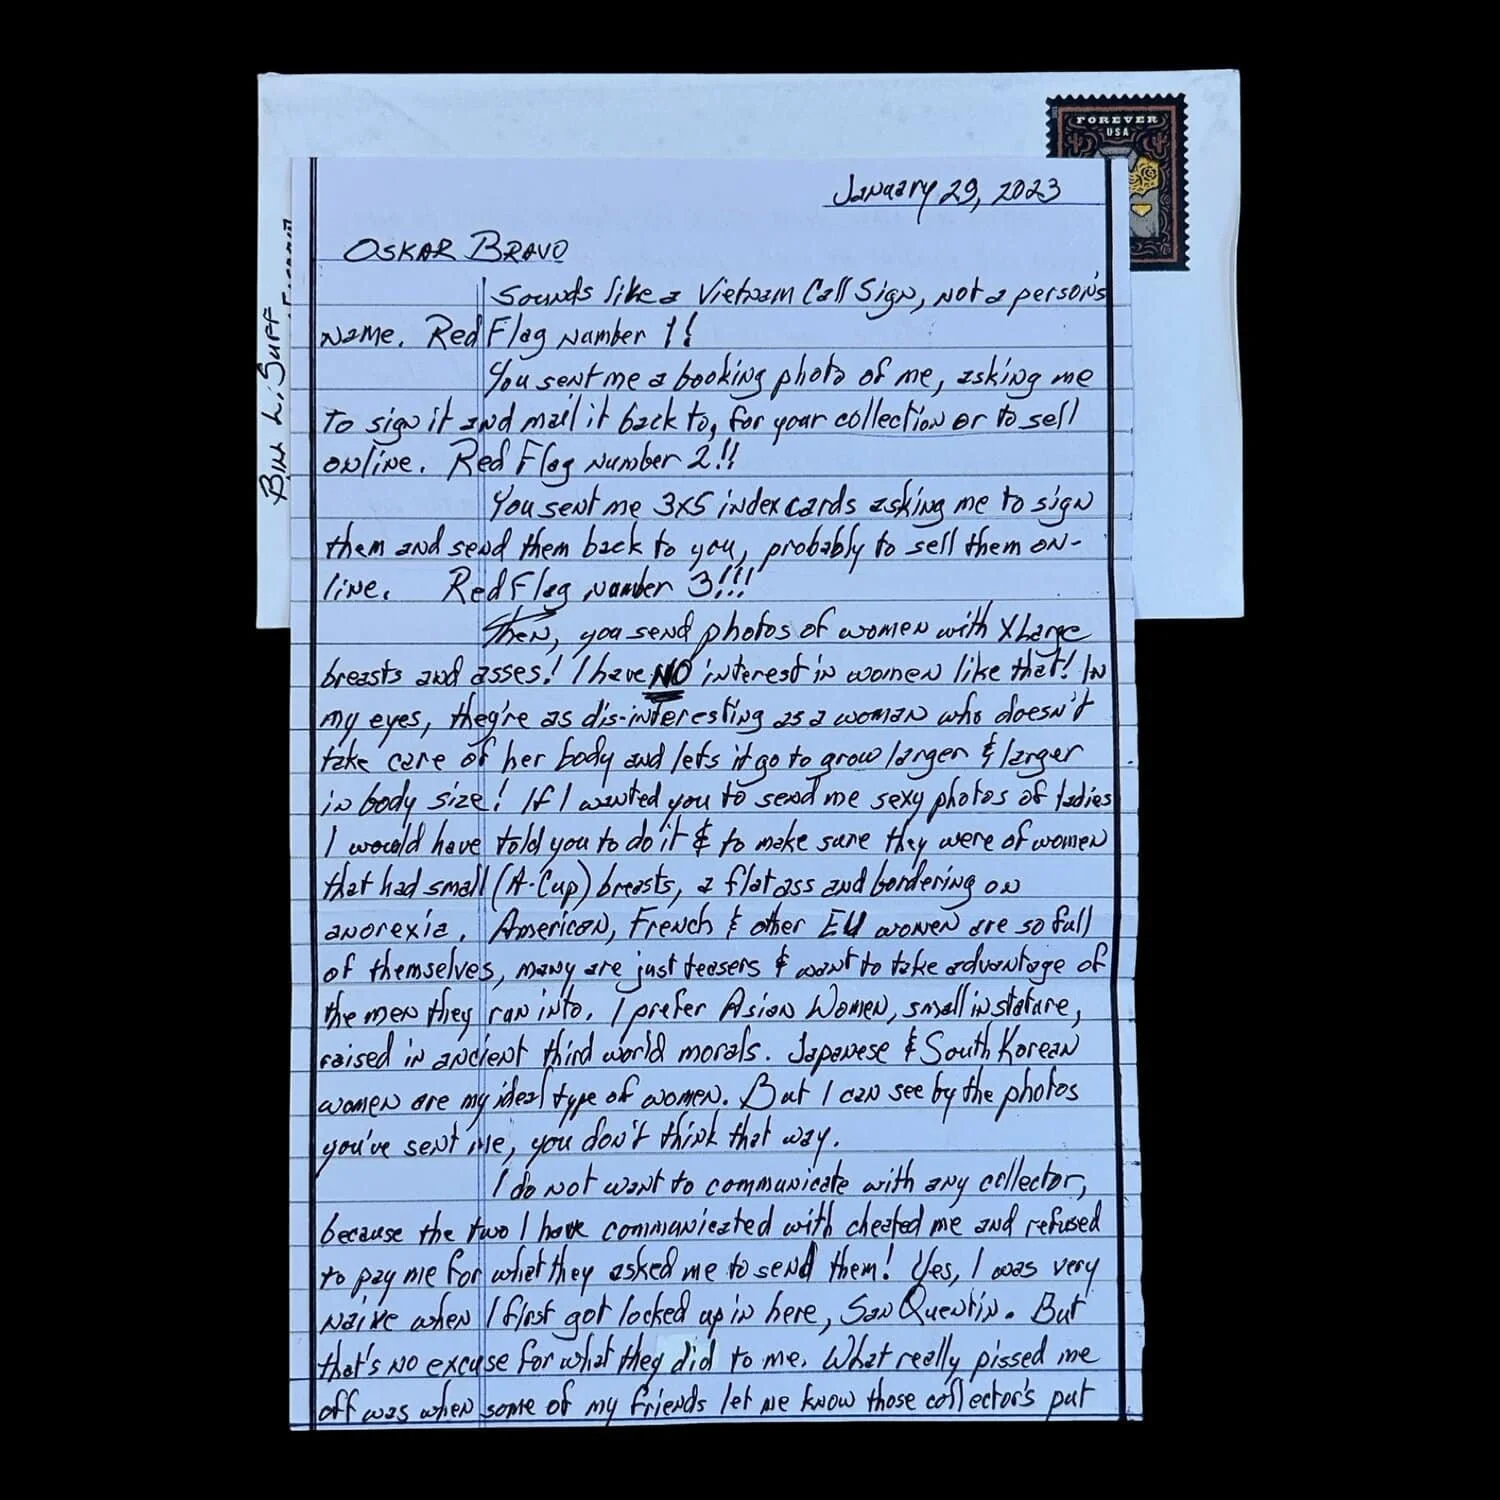 FOREVER
USA
January 29, 2023
Bill L. Suff
OSKAR BRAVO
Sounds like a Vietnam Call Sign, not a person's
name. Red Flag number 1!
You sent me a booking photo of me, asking me
to sign it and mail it back to, for your collection or to sell
online. Red Flag number 2!!
You sent me 3x5 index cards asking me to sign
them and send them back to you, probably to sell them on-
line. Red Flag number 3!!!
Then, you send photos of women with XLarge
breasts and asses! I have NO interest in women like that! In
my eyes, they're as dis-interesting as a woman who doesn't
take care of her body and lets it go to grow larger & larger
in body size! If I wanted you to send me sexy photos of ladies
I would have told you to do it & to make sure they were of women
that had small (A-Cup) breasts, a flat ass and bordering on
anorexia. American, French & other EU women are so full
of themselves, many are just teasers & want to take advantage of
the men they run into. I prefer Asian Women, small in stature,
raised in ancient third world morals. Japanese & South Korean
women are my ideal type of women. But I can see by the photos
you've sent me, you don't think that way.
I do not want to communicate with any collector,
because the two I have communicated with cheated me and refused
to pay me for what they asked me to send them! Yes, I was very
naive when I first got locked up in here, San Quentin. But
that's no excuse for what they did to me. What really pissed me
off was when some of my friends let me know those collector's put